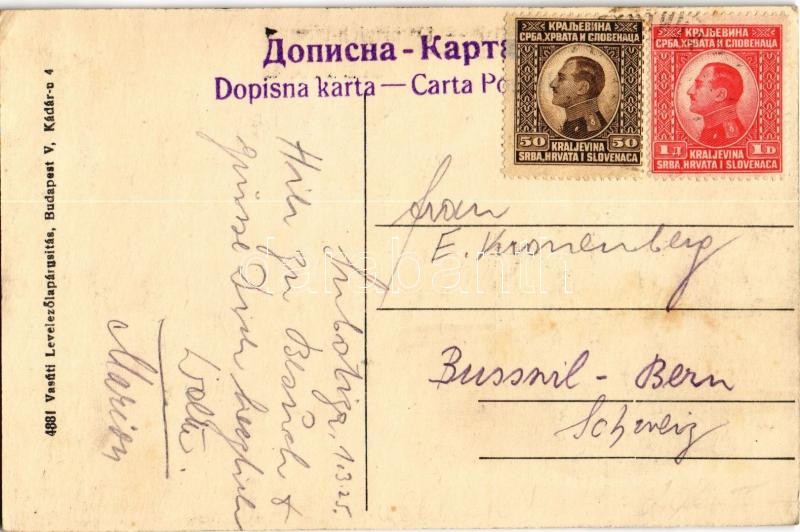 Дописна - Карта
Dopisna karta — Carta Po
КРАЉЕВИНА
СРБА, ХРВАТА И СЛОВЕНАЦА
50 50
KRALJEVINA
SRBA, HRVATA I SLOVENACA
КРАЉЕВИНА
СРБА, ХРВАТА И СЛОВЕНАЦА
1 Д 1 D
KRALJEVINA
SRBA, HRVATA I SLOVENACA
4881 Vasúti Levelezőlapárusitás, Budapest V, Kádár-u 4
Subotiza, 1.3.25.
Hier zu Besuch &
grüsse Dich herzlich
Marion
Frau
E. Kronenberg
Busswil - Bern
Schweiz
darabanth